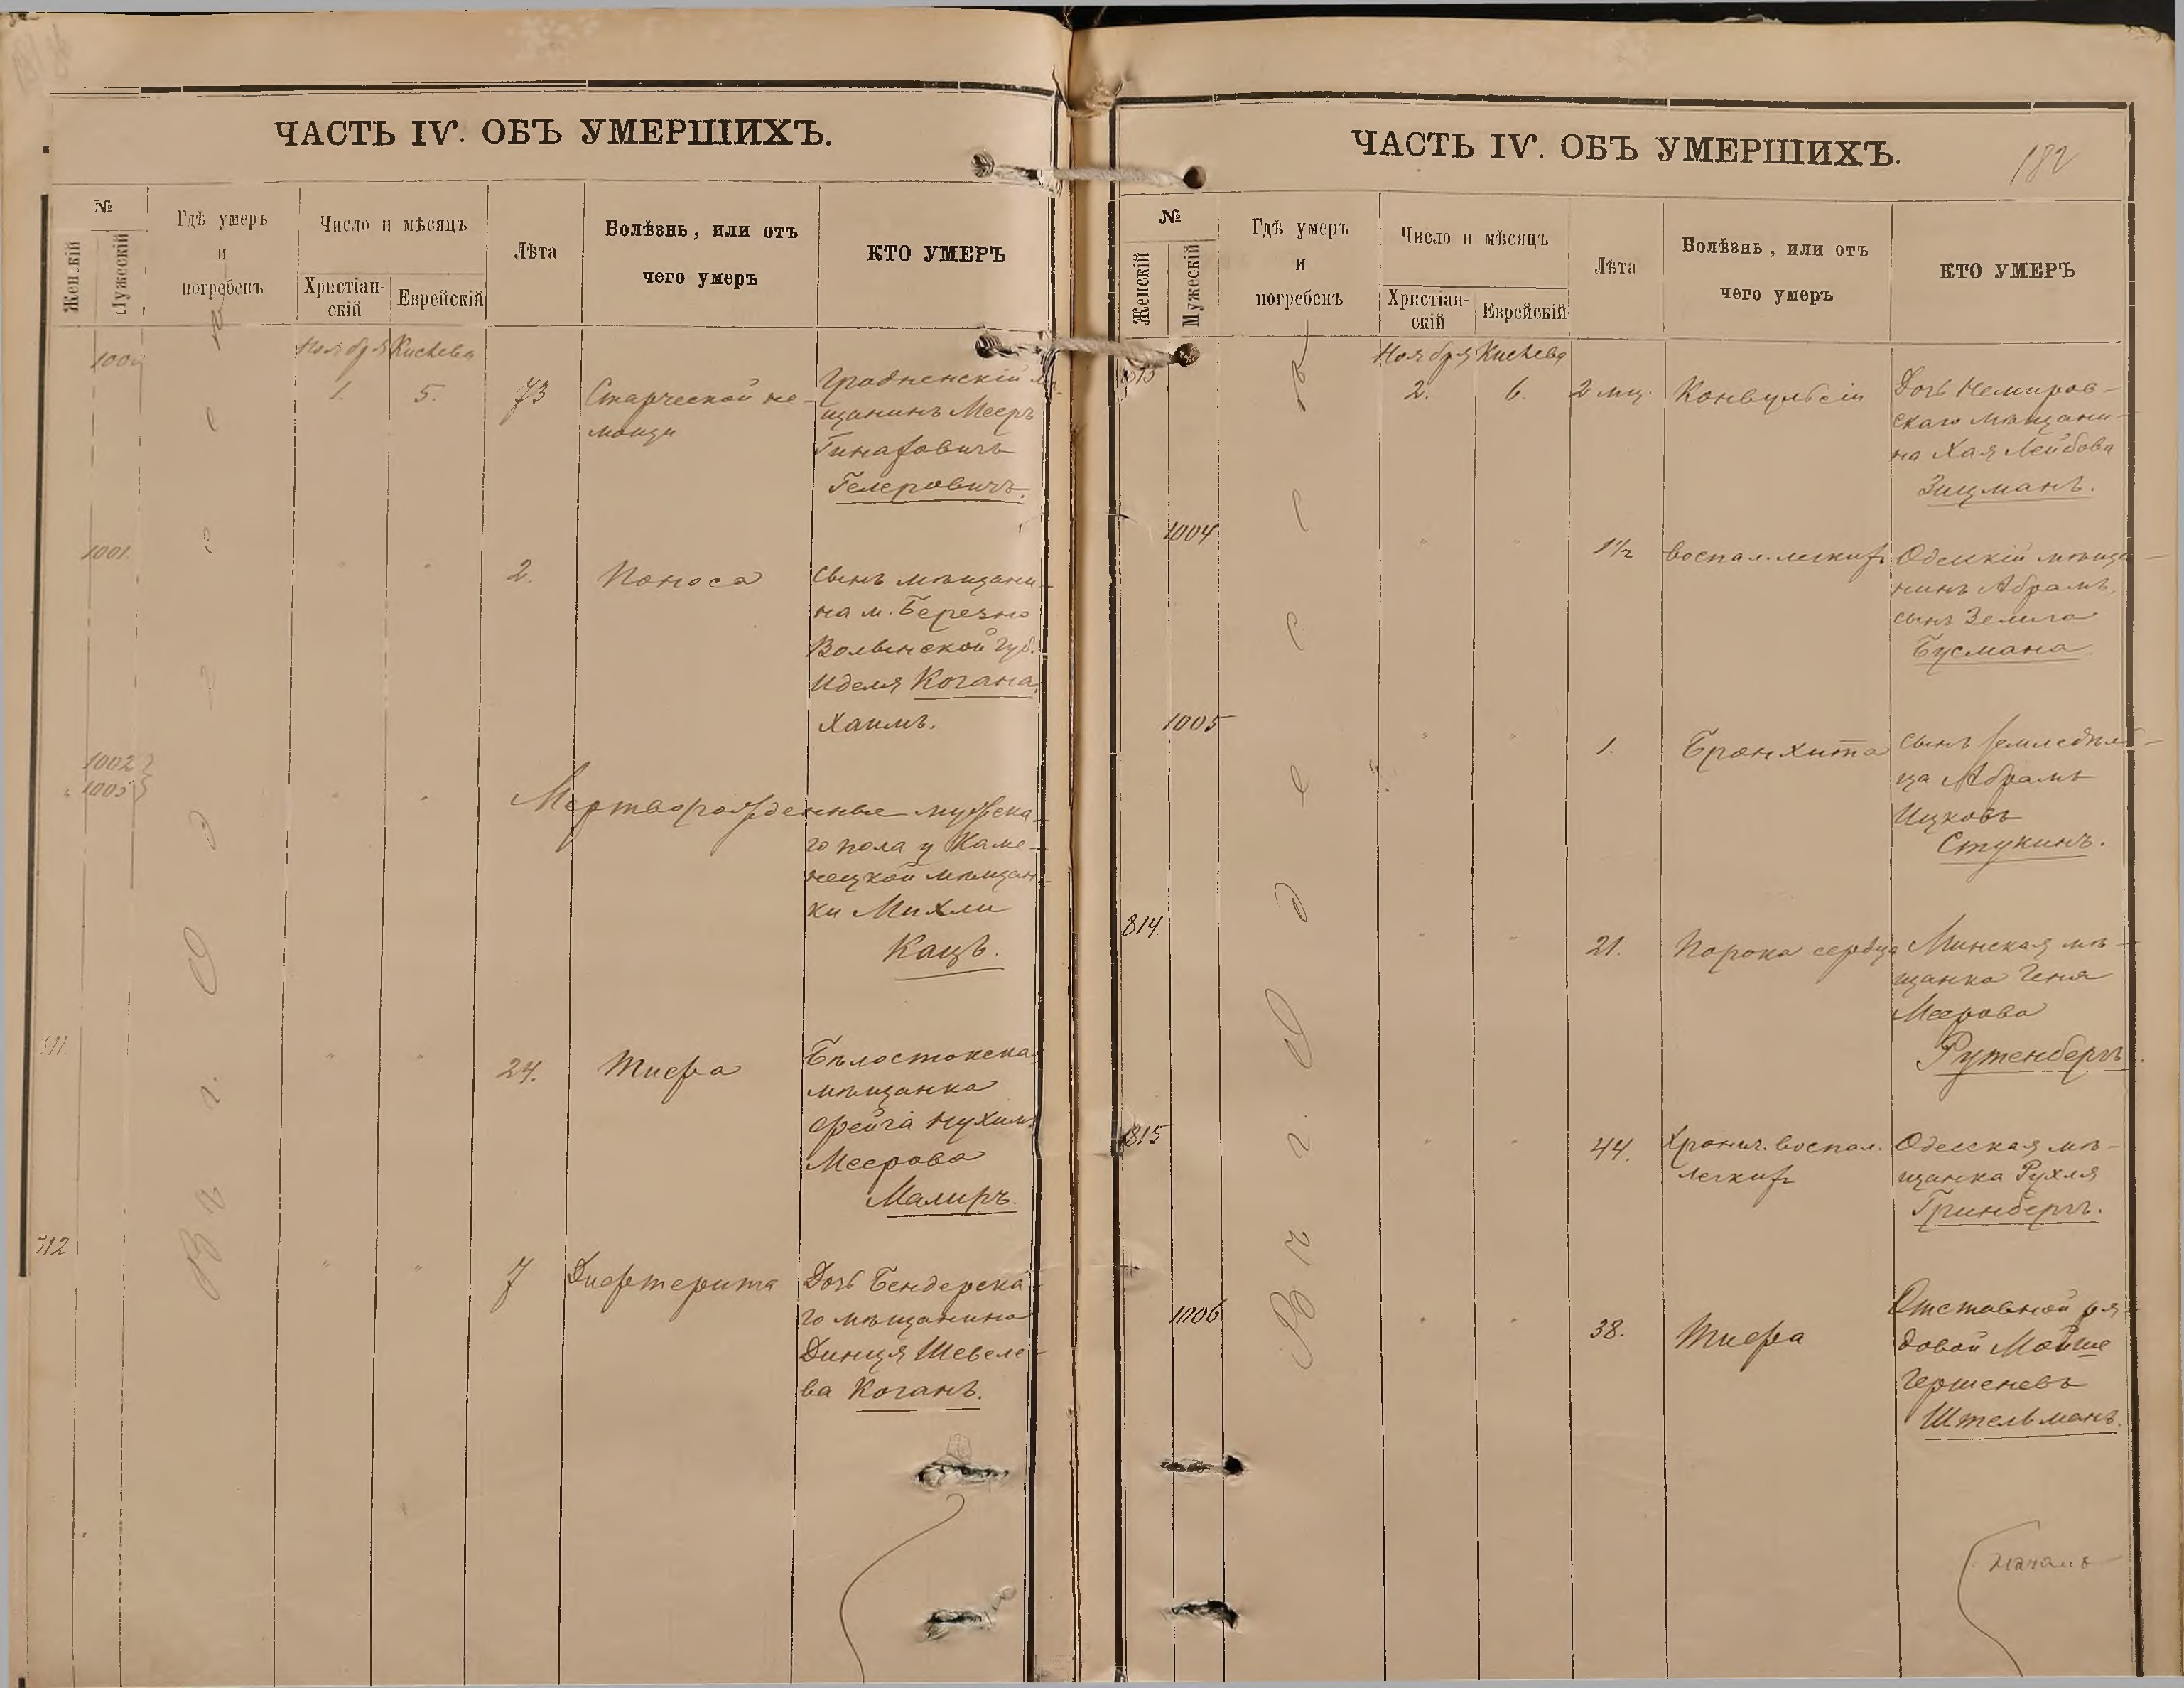 ЧАСТЬ IV. ОБЪ УМЕРШИХЪ.
№
Женскій
Мужескій
Гдѣ умеръ
и
погребенъ
Число и мѣсяцъ
Христіан-
скій
Еврейскій
Лѣта
Болѣзнь, или отъ
чего умеръ
КТО УМЕРЪ
Въ г. Одессѣ
Ноября Кислева
1. 5. 73
Старческой не-
мощи
Гродненскій мѣ-
щанинъ Мееръ
Гелеровичъ.
1001. " " 2. Поноса
Сынъ мѣщани-
на м. Березно
Волынской губ.
Иделя Когана,
Хаимъ.
1002
1003 " "
Мертворожденные мужска-
го пола у Каме-
нецкой мѣщан-
ки Михли
Кацъ.
811. " " 24. Тифа
Бѣлостокска
мѣщанка
Фейга Нухим
Меерова
Малиръ.
812 " " 7 Дифтерита
Дочь Бендерска-
го мѣщанина
Динця Шевеле-
ва Коганъ.
ЧАСТЬ IV. ОБЪ УМЕРШИХЪ.
182
№
Женскій
Мужескій
Гдѣ умеръ
и
погребенъ
Число и мѣсяцъ
Христіан-
скій
Еврейскій
Лѣта
Болѣзнь, или отъ
чего умеръ
КТО УМЕРЪ
Въ г. Одессѣ
Ноября Кислева
813 2. 6. 2 мц. Конвульсіи
Дочь Немиров-
скаго мѣщани-
на Хая Лейбова
Зицманъ.
1004 " " 1½ Воспал. легкихъ
Одесскій мѣща-
нинъ Абрамъ,
сынъ Зелига
Бусмана
1005 " " 1. Бронхита
Сынъ земледѣль-
ца Абрамъ
Ицковъ
Стукинъ.
814. " " 21. Порока сердца
Минская мѣ-
щанка Геня
Меерова
Рутенбергъ.
815 " " 44. Хронич. воспал.
легкихъ
Одесская мѣ-
щанка Рухля
Гринбергъ.
1006 " " 38. Тифа
Отставной ря-
довой Мойше
Гершеневъ
Штельманъ.